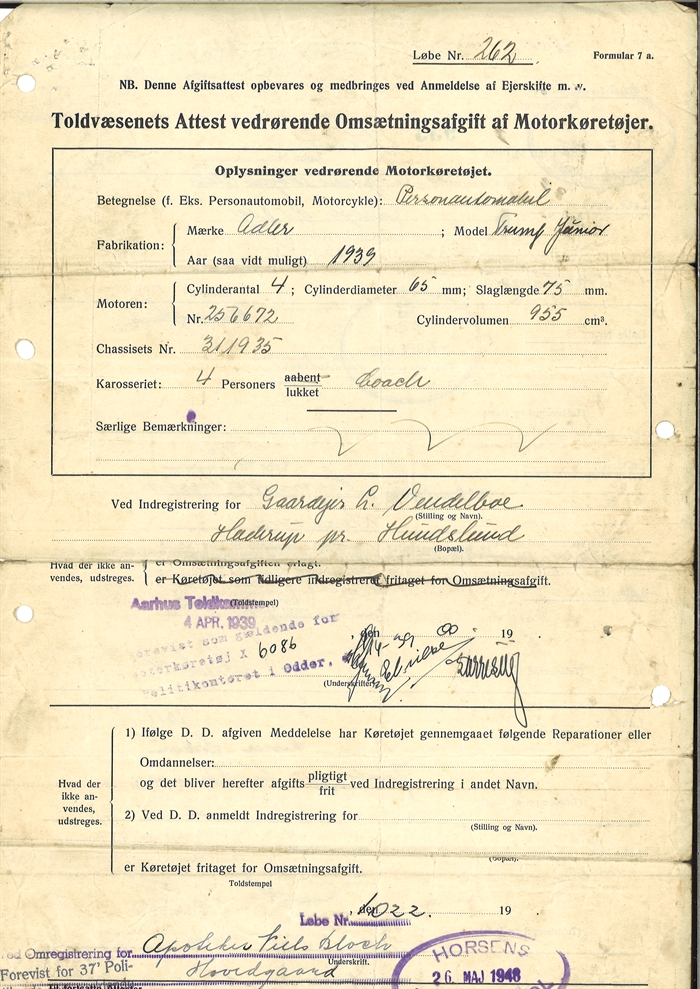 Løbe Nr. 262
Formular 7 a.
NB. Denne Afgiftsattest opbevares og medbringes ved Anmeldelse af Ejerskifte m. v.
Toldvæsenets Attest vedrørende Omsætningsafgift af Motorkøretøjer.
Oplysninger vedrørende Motorkøretøjet.
Betegnelse (f. Eks. Personautomobil, Motorcykle): Personautomobil
Fabrikation:
Mærke Adler ; Model Trumf Junior
Aar (saa vidt muligt) 1939
Motoren:
Cylinderantal 4 ; Cylinderdiameter 65 mm; Slaglængde 75 mm.
Nr. 256672 Cylindervolumen 955 cm³.
Chassisets Nr. 311935
Karosseriet: 4 Personers aabent Coach
lukket
Særlige Bemærkninger:
Ved Indregistrering for Gaardejer L. Vendelboe
(Stilling og Navn).
Haderup pr. Hundslund
(Bopæl).
Hvad der ikke an-
vendes, udstreges.
er Omsætningsafgiften erlagt.
er Køretøjet som tidligere indregistreret fritaget for Omsætningsafgift.
Aarhus
(Toldstempel)
4 APR. 1939
Forevist som gældende for
Motorkøretøj X 6086
Politikontoret i Odder,
, den 19
(Underskrifter)
1) Ifølge D. D. afgiven Meddelelse har Køretøjet gennemgaaet følgende Reparationer eller
Omdannelser:
og det bliver herefter afgifts pligtigt ved Indregistrering i andet Navn.
frit
Hvad der
ikke an-
vendes,
udstreges.
2) Ved D. D. anmeldt Indregistrering for
(Stilling og Navn).
(Bopæl).
er Køretøjet fritaget for Omsætningsafgift.
Toldstempel
, den 19
Løbe Nr. 1022.
Ved Omregistrering for Apoteker Niels Bloch
Underskrift.
Hovedgaard
Forevist for 37' Poli-
HORSENS
26. MAJ 1948